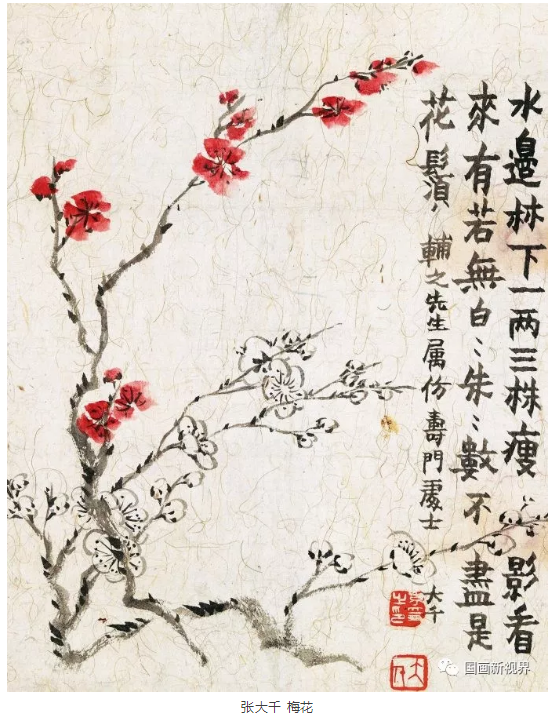 水邉林下一两三株瘦影看
來有若無白〻朱〻數不盡是
花鬚 輔之先生属仿壽門處士
大千
国画新视界
张大千 梅花